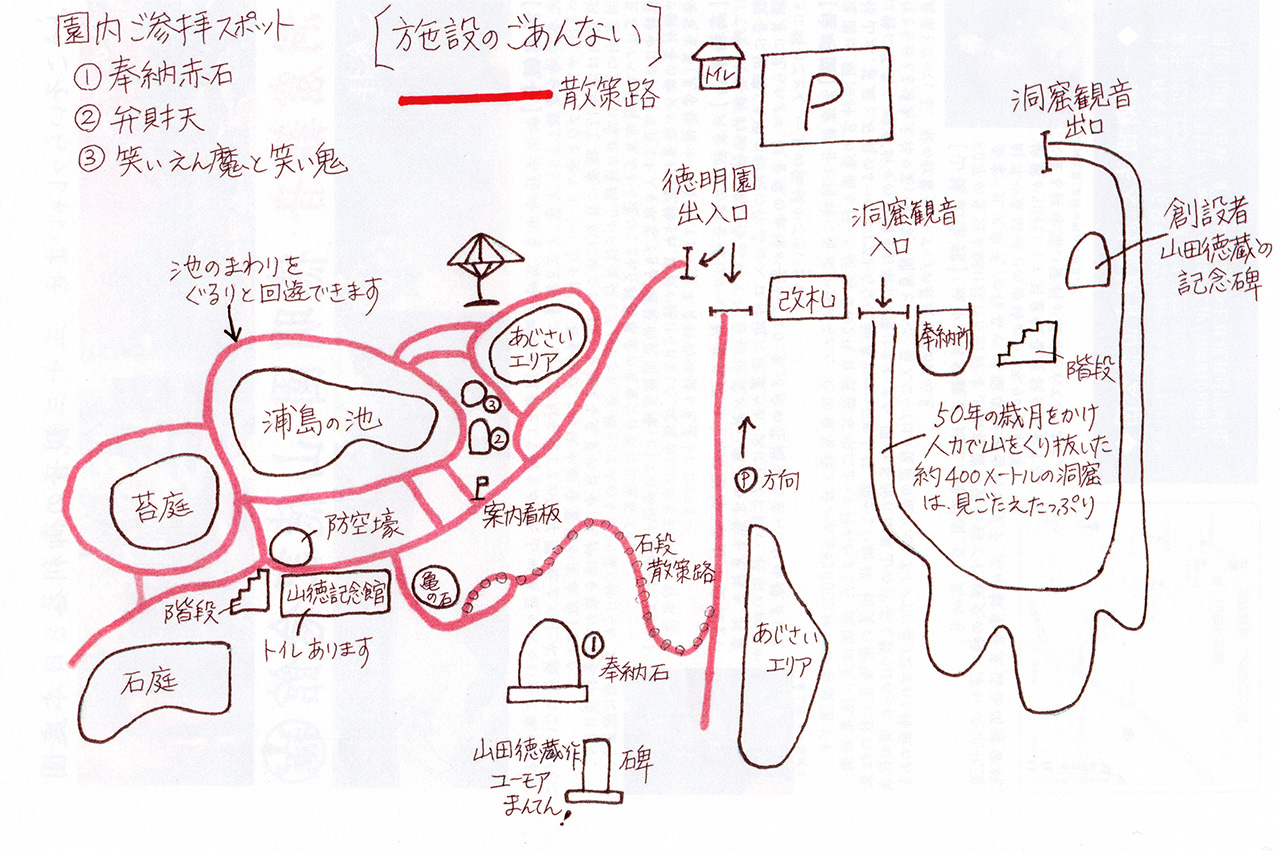 園内ご参拝スポット
① 奉納赤石
② 弁財天
③ 笑いえん魔と笑い鬼
[施設のごあんない]
散策路
トイレ
P
洞窟観音
出口
徳明園
出入口
洞窟観音
入口
創設者
山田徳蔵の
記念碑
池のまわりを
ぐるりと回遊できます
改札
奉納所
階段
あじさい
エリア
③
浦島の池
②
50年の歳月をかけ
人力で山をくり抜いた
約400メートルの洞窟
は、見ごたえたっぷり
苔庭
P方向
案内看板
防空壕
石段
散策路
亀の石
山徳記念館
階段
トイレあります
あじさい
エリア
石庭
①
奉納石
山田徳蔵作
ユーモア
まんてん!
碑